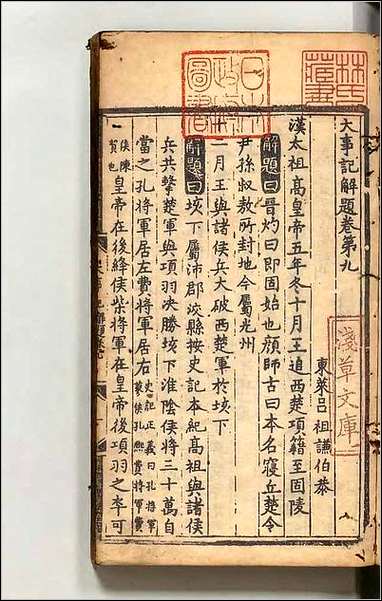 大事記解題卷第九
東萊呂 祖謙伯恭
漢太祖高皇帝五年冬十月王追西楚項籍至固陵
解題曰晉灼曰即固始也顏師古曰本名寑丘楚令
尹孫叔敖所封地今屬光州
十一月王與諸侯兵大破西楚軍於垓下
解題曰垓下屬沛郡洨縣按史記本紀高祖與諸侯
兵共擊楚軍與項羽決勝垓下淮陰侯將三十萬自
當之孔將軍居左費將軍居右史記正義曰孔將軍蓼侯孔熙費將軍費
侯陳賀也皇帝在後絳侯柴將軍在皇帝後項羽之卒可
林氏藏書
日本政府圖書
淺草文庫